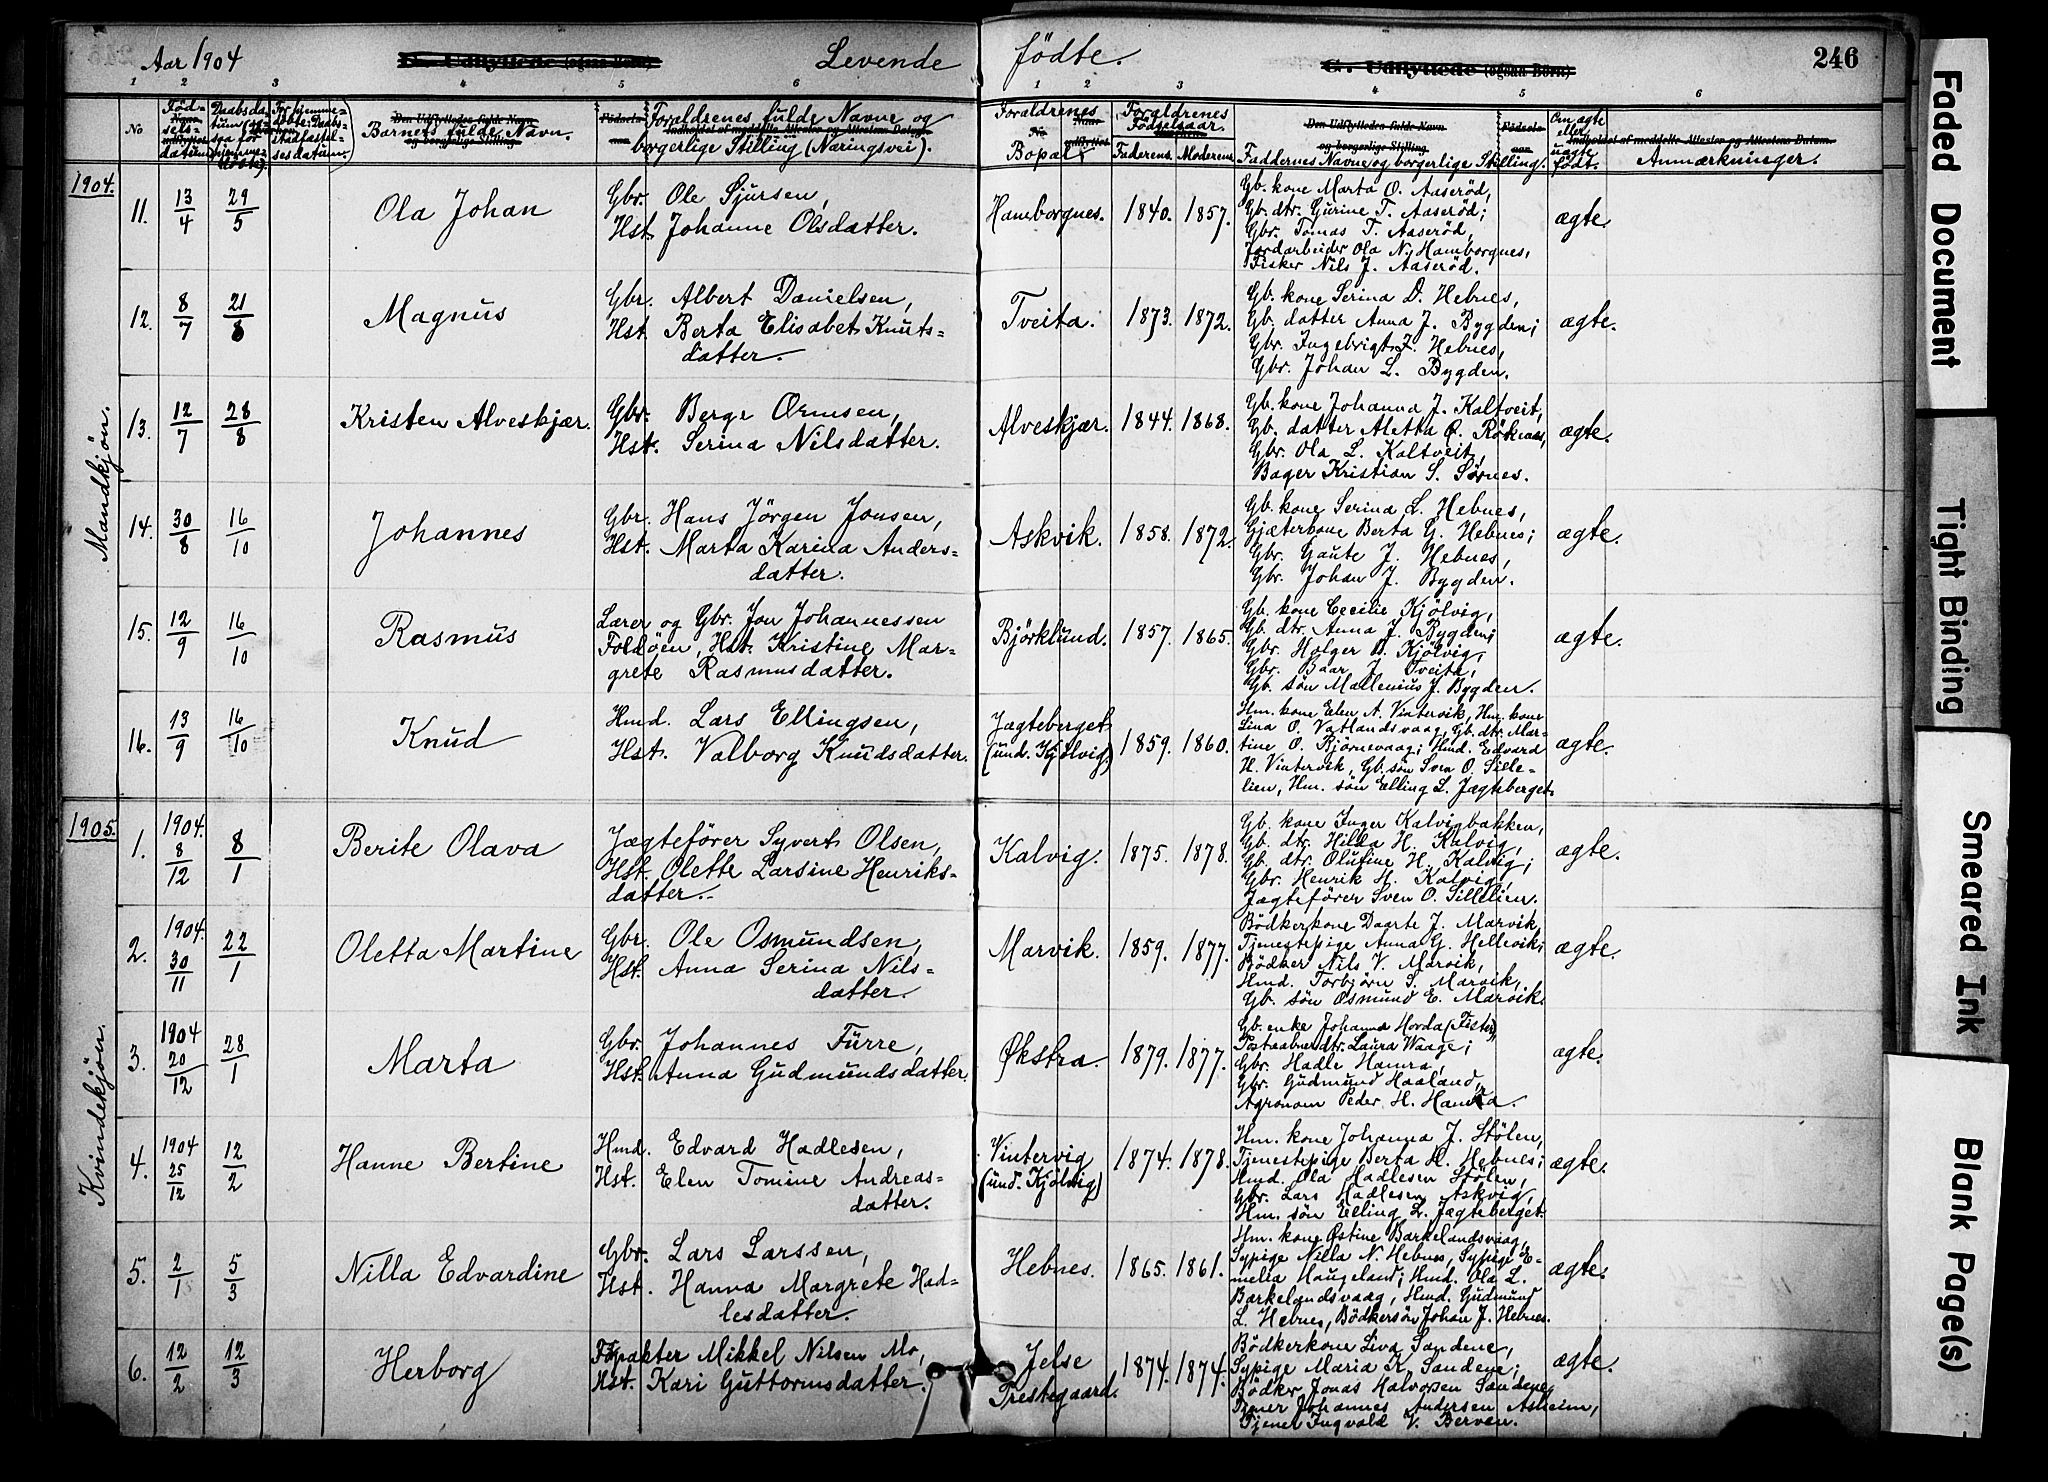 Aar 1904
Levende
fødte.
246
1 2 3 4 5 6
1 2 3 4 5 6
No
Fød-
sels-
datum
Barnets fulde Navn.
Forældrenes fulde Navne og
borgerlige Stilling (Næringsvei).
Forældrenes
Bopæl.
Forældrenes
Fødselsaar.
Faderens. Moderens.
Faddernes Navne og borgerlige Stilling.
Om ægte
eller
uægte
født.
Anmærkninger.
1904.
Mandkjøn.
11. 13/4 29/5 Ola Johan
Gbr. Ole Sjursen,
Hst. Johanne Olsdatter.
Hamborgnes. 1840. 1857.
Gb. kone Marta O. Aaserød,
Gb. dtr. Gurine T. Aaserød;
Gbr. Tomas T. Aaserød,
Jordarbeider Ola N. Hamborgnes,
Fisker Nils J. Aaserød.
ægte.
12. 8/7 21/8 Magnus
Gbr. Albert Danielsen,
Hst. Berta Elisabet Knuts-
datter.
Tveita. 1873. 1872.
Gb. kone Serina D. Hebnes,
Gb. datter Anna J. Bygden;
Gbr. Ingebrigt J. Hebnes,
Gbr. Johan L. Bygden.
ægte.
13. 12/7 28/8 Kristen Alveskjær.
Gbr. Berge Ormsen,
Hst. Serina Nilsdatter.
Alveskjær. 1844. 1868.
Gb. kone Johanna J. Kaltveit,
Gb. datter Aletta O. Röknæs,
Gbr. Ola L. Kaltveit,
Bager Kristian S. Sørnes.
ægte.
14. 30/8 16/10 Johannes
Gbr. Hans Jörgen Jonsen,
Hst. Marta Karina Anders-
datter.
Askvik. 1858. 1872.
Gb. kone Serina L. Hebnes,
Gjæterkone Berta G. Hebnes;
Gbr. Gaute J. Hebnes,
Gbr. Johan J. Bygden.
ægte.
15. 12/9 16/10 Rasmus
Lærer og Gbr. Jon Johannessen
Foldöen, Hst. Kristine Mar-
grete Rasmusdatter.
Björklund. 1857. 1865.
Gb. kone Cecilie Kjölvig,
Gb. dtr. Anna J. Bygden;
Gbr. Holger D. Kjölvig,
Gbr. Baar J. Tveita,
Gb. sön Mallenius J. Bygden.
ægte.
16. 13/9 16/10 Knud
Hmd. Lars Ellingsen,
Hst. Valborg Knudsdatter.
Jægteberget
(und. Kjölvig) 1859. 1860.
Hm. kone Elen A. Vintervik, Hm. kone
Lina O. Vatlandsvaag, Gb. dtr. Mar-
tine O. Björnevaag; Hmd. Edvard
H. Vintervik, Gb. sön Sven O. Sille-
lien, Hm. sön Elling L. Jægteberget.
ægte.
1905.
Kvindekjøn.
1. 1904. 8/12 8/1 Berite Olava
Jægtefører Syvert Olsen,
Hst. Olette Larsine Henriks-
datter.
Kalvig. 1875. 1878.
Gb. kone Inger Kalvigbakken,
Gb. dtr. Hilda H. Kalvig,
Gb. dtr. Olufine H. Kalvig;
Gbr. Henrik H. Kalvig,
Jægtefører Sven O. Sillelien.
ægte.
2. 1904. 30/11 22/1 Oletta Martine
Gbr. Ole Osmundsen,
Hst. Anna Serina Nils-
datter.
Marvik. 1859. 1877.
Bödkerkone Daarte J. Marvik,
Tjenestepige Anna G. Hellevik;
Bödker Nils V. Marvik,
Hmd. Torbjörn S. Marvik,
Gb. sön Osmund E. Marvik.
ægte.
3. 1904 20/12 28/1 Marta
Gbr. Johannes Furre,
Hst. Anna Gudmundsdatter.
Økstra. 1879. 1877.
Gb. enke Johanna Horda (Fister),
Postaabnerdtr. Laura Waage;
Gbr. Hadle Hamra,
Gbr. Gudmund Haaland,
Agronom Peder H. Hamra.
ægte.
4. 1904 25/12 12/2 Hanne Bertine
Hmd. Edvard Hadlesen,
Hst. Elen Tomine Andreas-
datter.
Vintervig
(und. Kjölvig) 1874. 1878.
Hm. kone Johanna J. Stölen,
Tjenestepige Berta H. Hebnes;
Hmd. Ola Hadlesen Stölen,
Gbr. Lars Hadlesen Askvig,
Hm. sön Elling L. Jægteberget.
ægte.
5. 2/1 5/3 Nilla Edvardine
Gbr. Lars Larssen,
Hst. Hanna Margrete Had-
lesdatter.
Hebnes. 1865. 1861.
Hm. kone Østine Barkelandsvaag,
Sypige Nilla N. Hebnes, Sypige E-
melia Haugeland; Hmd. Ola L.
Barkelandsvaag, Hmd. Gudmund
L. Hebnes, Bödkersön Johan J. Hebnes.
ægte.
6. 12/2 12/3 Herborg
Forpakter Mikkel Nilsen Mo,
Hst. Kari Guttormsdatter.
Jelse
Prestegaard. 1874. 1874.
Bödkerkone Liva Sandene,
Sypige Maria K. Sandene;
Bödker Jonas Halvorsen Sandene,
Tjener Johannes Andersen Asheim,
Tjener Ingvald V. Berven.
ægte.
Faded Document
Tight Binding
Smeared Ink
Blank Page(s)